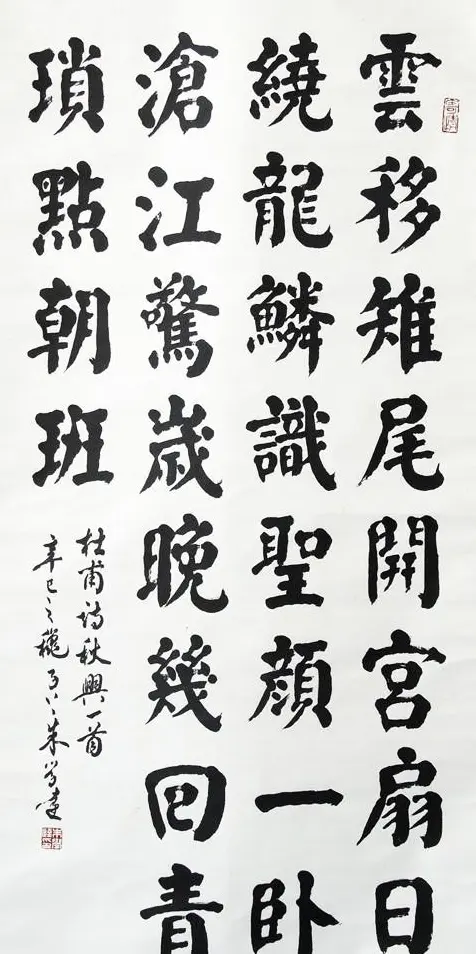 雲移雉尾開宮扇日
繞龍鱗識聖顔一卧
滄江驚歲晚幾回青
瑣點朝班
杜甫詩秋興一首
辛巳之穐